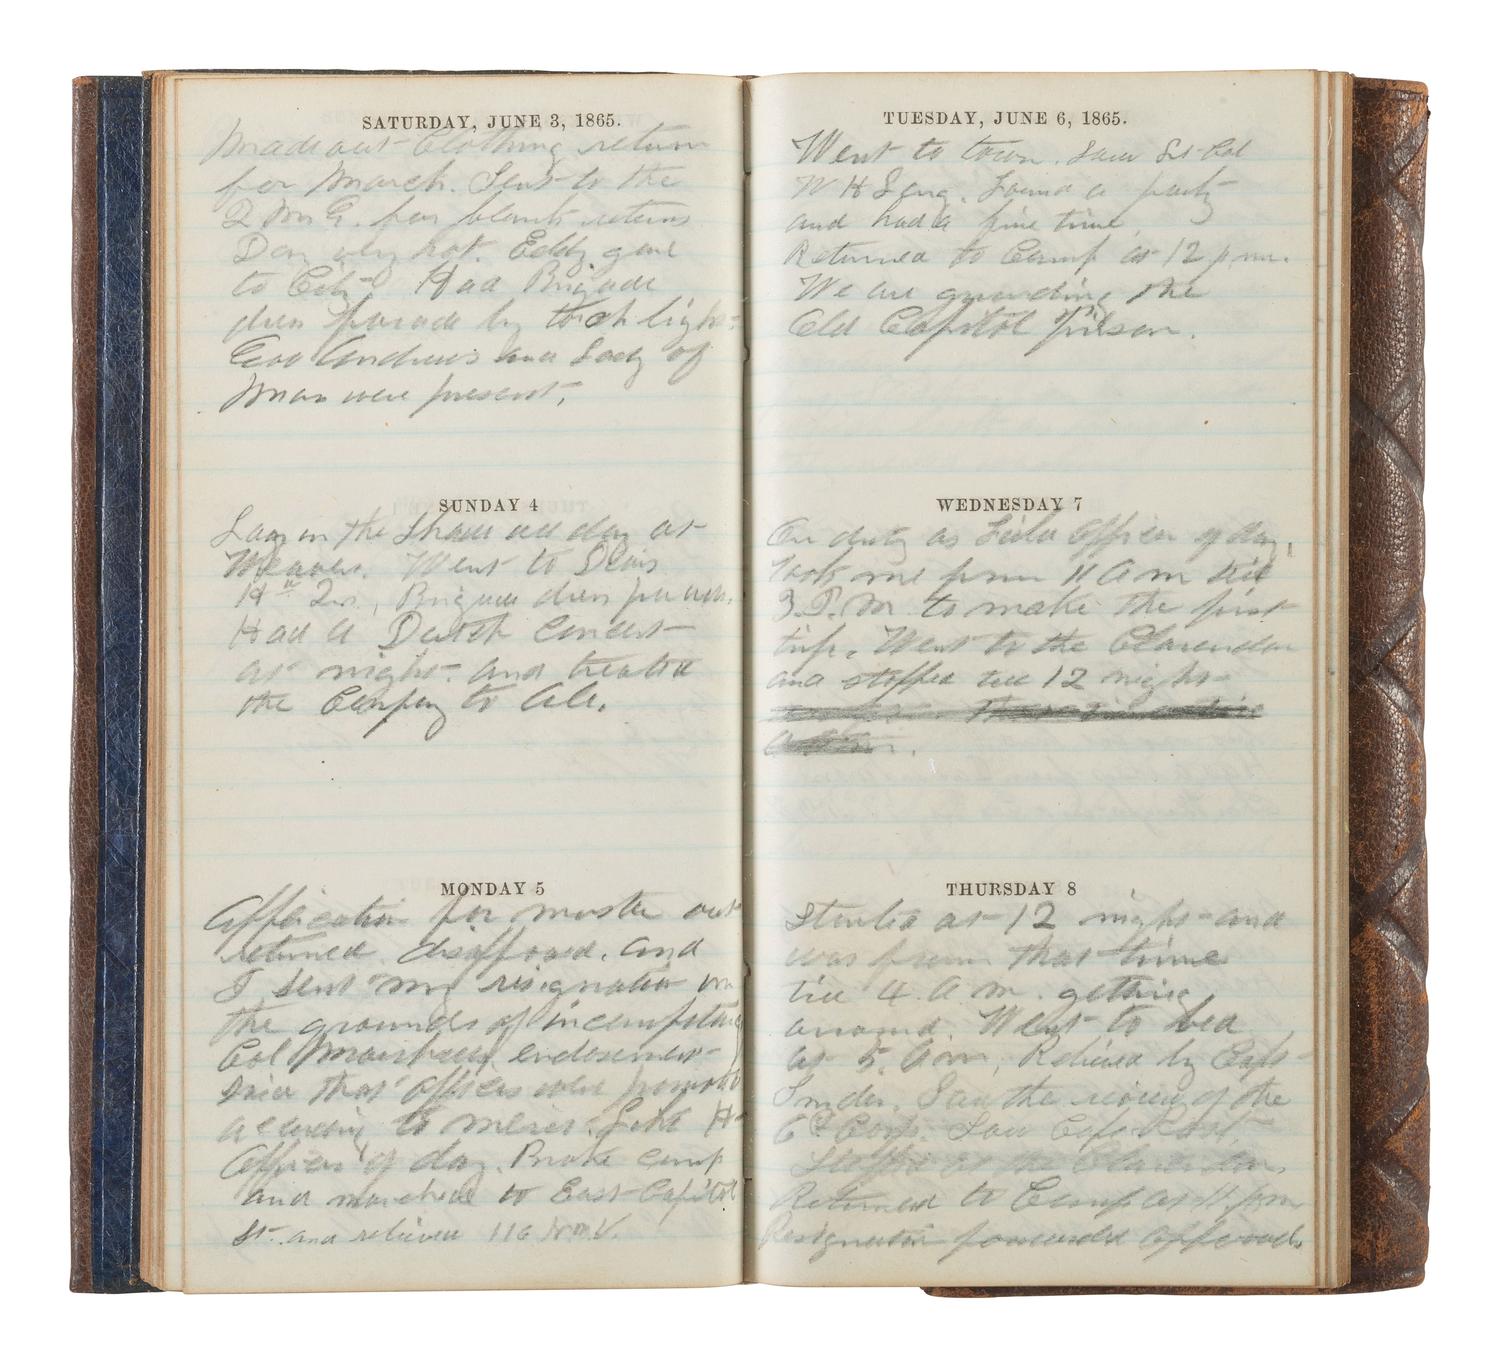 SATURDAY, JUNE 3, 1865.
Made out Clothing return
for March. Sent to the
Q M G. for blank returns
Day very hot. Eddy gone
to City Had Brigade
dress parade by torch light
Gov Andrews and Lady of
Mass were present.
SUNDAY 4
Lay in the shade all day at
Went to
14th Brigade dress parade.
Had a Dutch Concert
at night and treated
the Company to Ale.
MONDAY 5
Application for muster out
returned disapproved. and
I sent my resignation on
the grounds of incompetency
Col endorsement
said that officers were promoted
according to merit.
Officer of day. Broke camp
and marched to East Capitol
St. and relieved 116 N.Y.V.
TUESDAY, JUNE 6, 1865.
Went to town. Saw Lt Col
W H Found a party
and had a fine time.
Returned to Camp at 12 p.m.
We are guarding the
Old Capitol Prison.
WEDNESDAY 7
On duty as Field Officer of day.
Took me from 11 A m till
3 P. M to make the first
trip. Went to the Clarendon
and stopped till 12 night
THURSDAY 8
Started at 12 night and
was from that time
till 4 A. m. getting
around. Went to bed
at 5. A m. Relieved by Capt
Snyder. Saw the review of the
6th Corps. Saw Capt
Stopped at the Clarendon
Returned to Camp at 11 p m
Resignation forwarded approved.